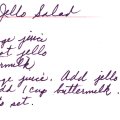 Jello Salad
ge juice
et jello
ermilk
ge juice. Add jello
dd 1 cup buttermilk.
o set.